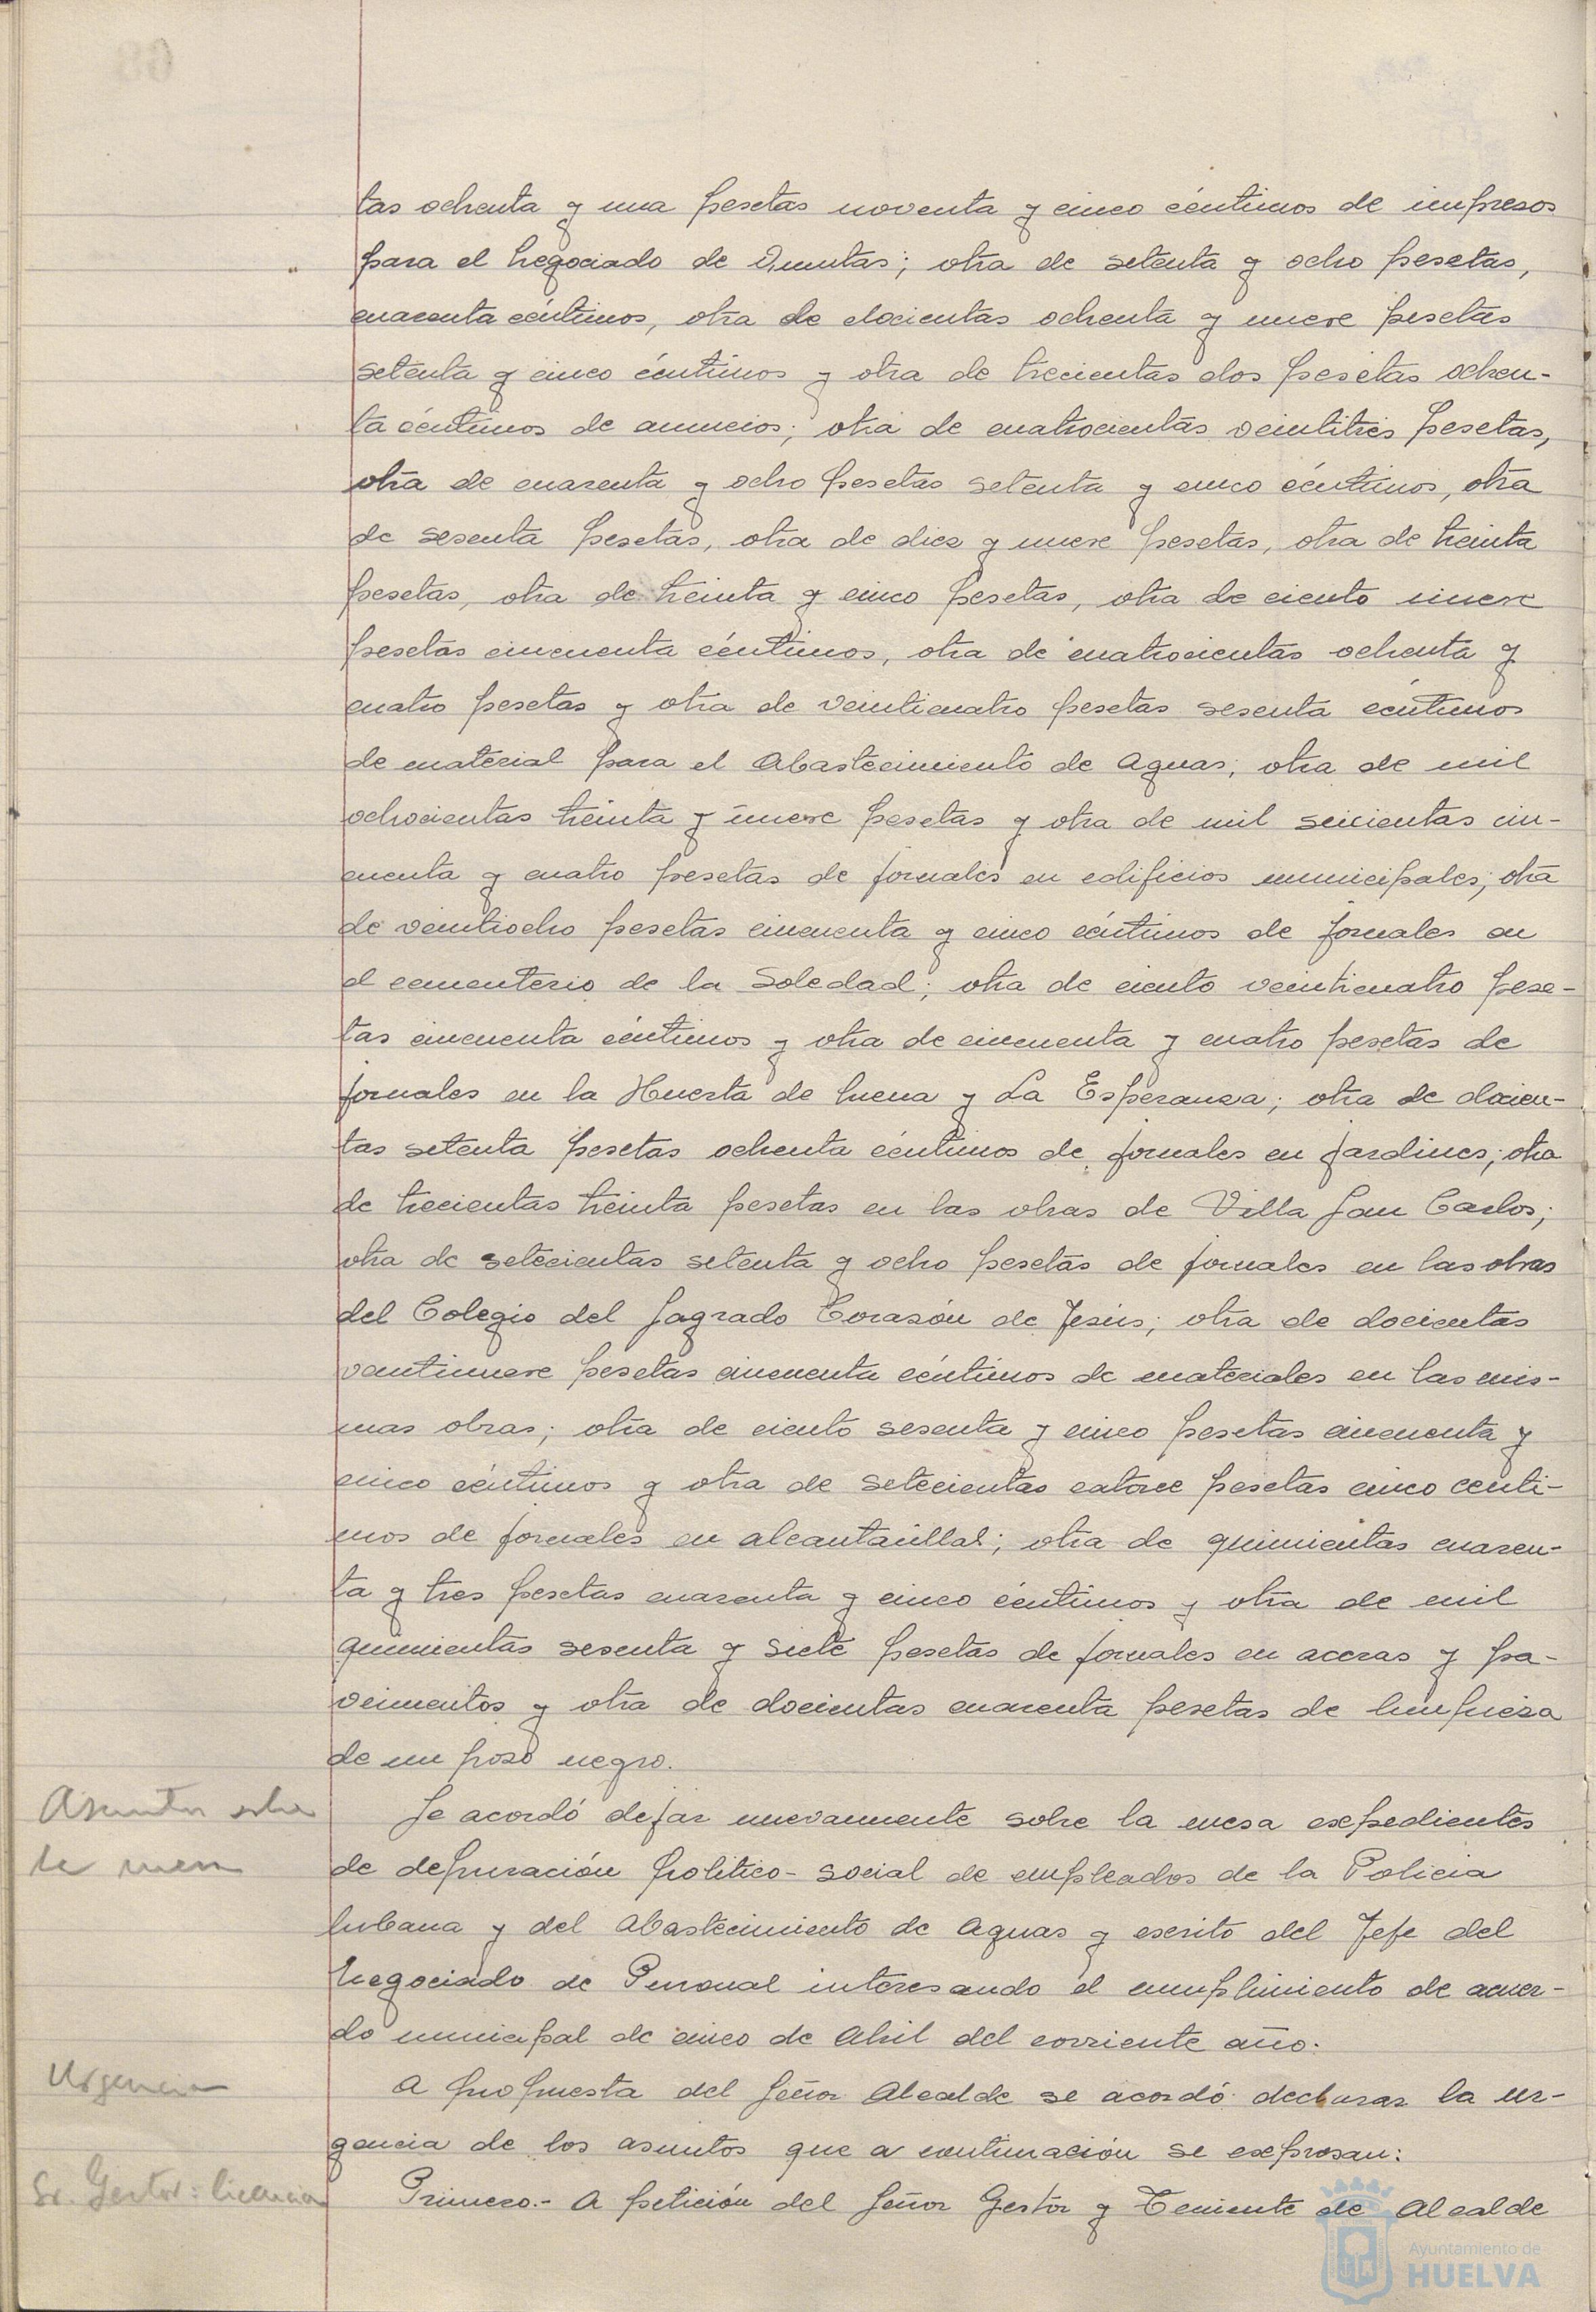 tas ochenta y una pesetas noventa y cinco céntimos de impresos
para el Negociado de Quintas; otra de setenta y ocho pesetas,
cuarenta céntimos, otra de docientas ochenta y nueve pesetas
setenta y cinco céntimos y otra de trecientas dos pesetas ochen-
ta céntimos de anuncios; otra de cuatrocientas veintitres pesetas,
otra de cuarenta y ocho pesetas setenta y cinco céntimos, otra
de sesenta pesetas, otra de diez y nueve pesetas, otra de treinta
pesetas, otra de treinta y cinco pesetas, otra de ciento nueve
pesetas cincuenta céntimos, otra de cuatrocientas ochenta y
cuatro pesetas y otra de veinticuatro pesetas sesenta céntimos
de material para el Abastecimiento de Aguas; otra de mil
ochocientas treinta y nueve pesetas y otra de mil seicientas cin-
cuenta y cuatro pesetas de jornales en edificios municipales; otra
de veintiocho pesetas cincuenta y cinco céntimos de jornales en
el cementerio de la Soledad; otra de ciento veinticuatro pese-
tas cincuenta céntimos y otra de cincuenta y cuatro pesetas de
jornales en la Huerta de Mena y La Esperanza; otra de docien-
tas setenta pesetas ochenta céntimos de jornales en jardines; otra
de trecientas treinta pesetas en las obras de Villa San Carlos;
otra de setecientas setenta y ocho pesetas de jornales en las obras
del Colegio del Sagrado Corazón de Jesús; otra de docientas
veintinueve pesetas cincuenta céntimos de materiales en las mis-
mas obras; otra de ciento sesenta y cinco pesetas cincuenta y
cinco céntimos y otra de setecientas catorce pesetas cinco centi-
mos de jornales en alcantarillas; otra de quinientas cuaren-
ta y tres pesetas cuarenta y cinco céntimos y otra de mil
quinientas sesenta y siete pesetas de jornales en aceras y pa-
vimentos y otra de docientas cuarenta pesetas de limpieza
de un pozo negro.
Asuntos sobre
la mesa
Se acordó dejar nuevamente sobre la mesa expedientes
de depuración politico-social de empleados de la Policia
Urbana y del Abastecimiento de Aguas y escrito del Jefe del
Negociado de Personal interesando el cumplimiento de acuer-
do municipal de cinco de Abril del corriente año.
Urgencia
A propuesta del Señor Alcalde se acordó declarar la ur-
gencia de los asuntos que a continuación se expresan:
Sr. Gestor: licencia
Primero.- A petición del Señor Gestor y Teniente de Alcalde
Ayuntamiento de
HUELVA